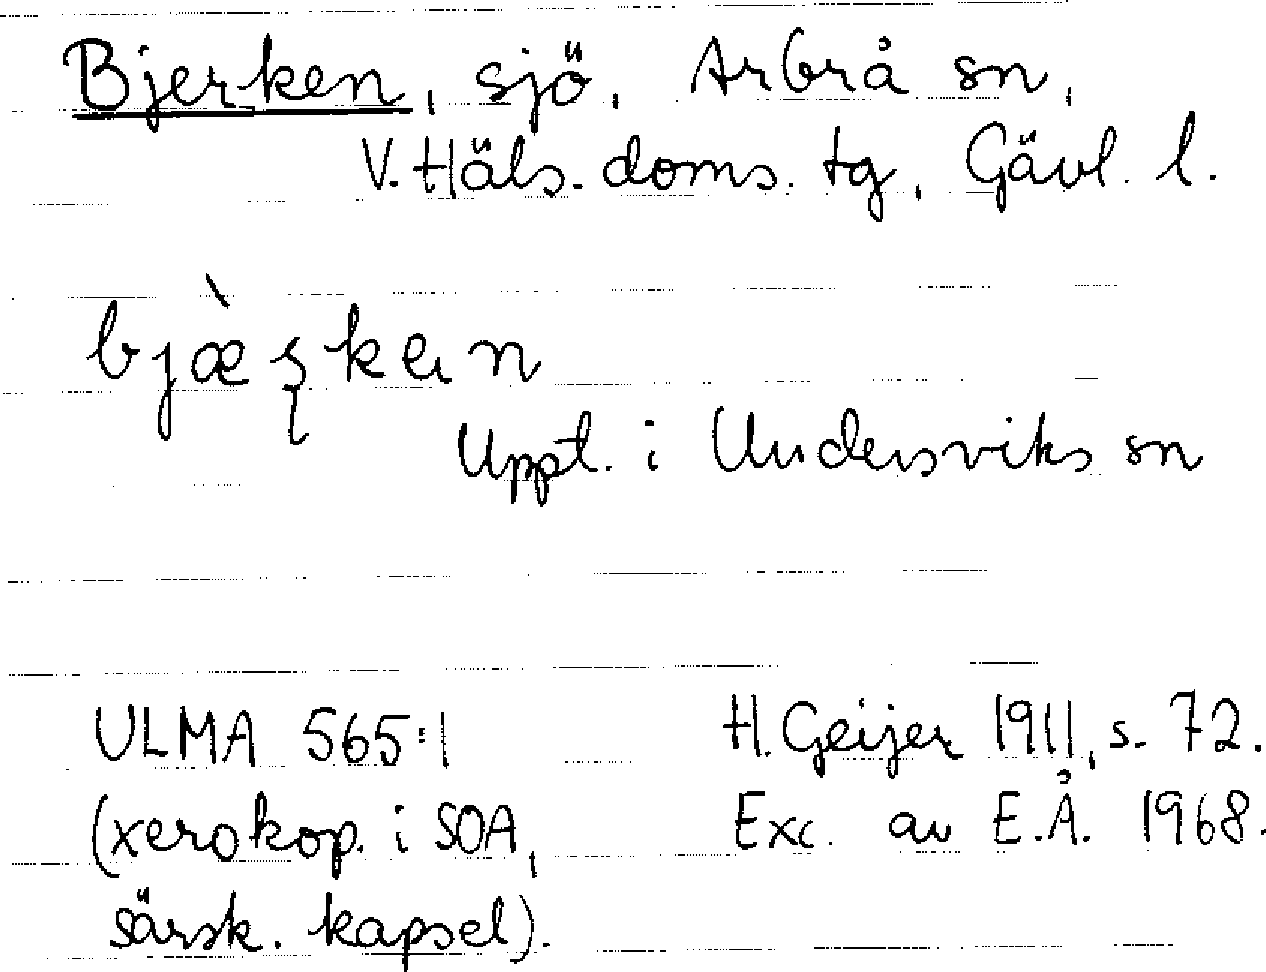 Bjerken, sjö, Arbrå sn,
V. Häls. doms. tg, Gävl. l.
Uppt. i Undersviks sn
ULMA 565:1
(xerokop. i SOA,
särsk. kapsel).
H. Geijer 1911, s. 72.
Exc. av E.Å. 1968.